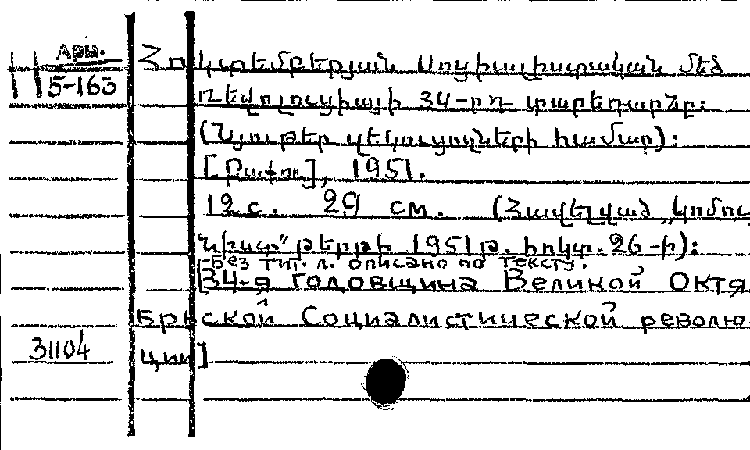 Арм.
5-163
Հոկտեմբերյան Սոցիալիստական մեծ
Ռևոլուցիայի 34-րդ տարեդարձը:
(Նյութեր զեկուցողների համար):
[Բաքու], 1951.
12 с. 29 см. (Հավելված „Կոմու
նիստ" թերթի 1951թ. հոկտ. 26-ի):
[Без тит. л. описано по тексту.
[34-я годовщина Великой Октя
брьской Социалистической револю
31104 ции]